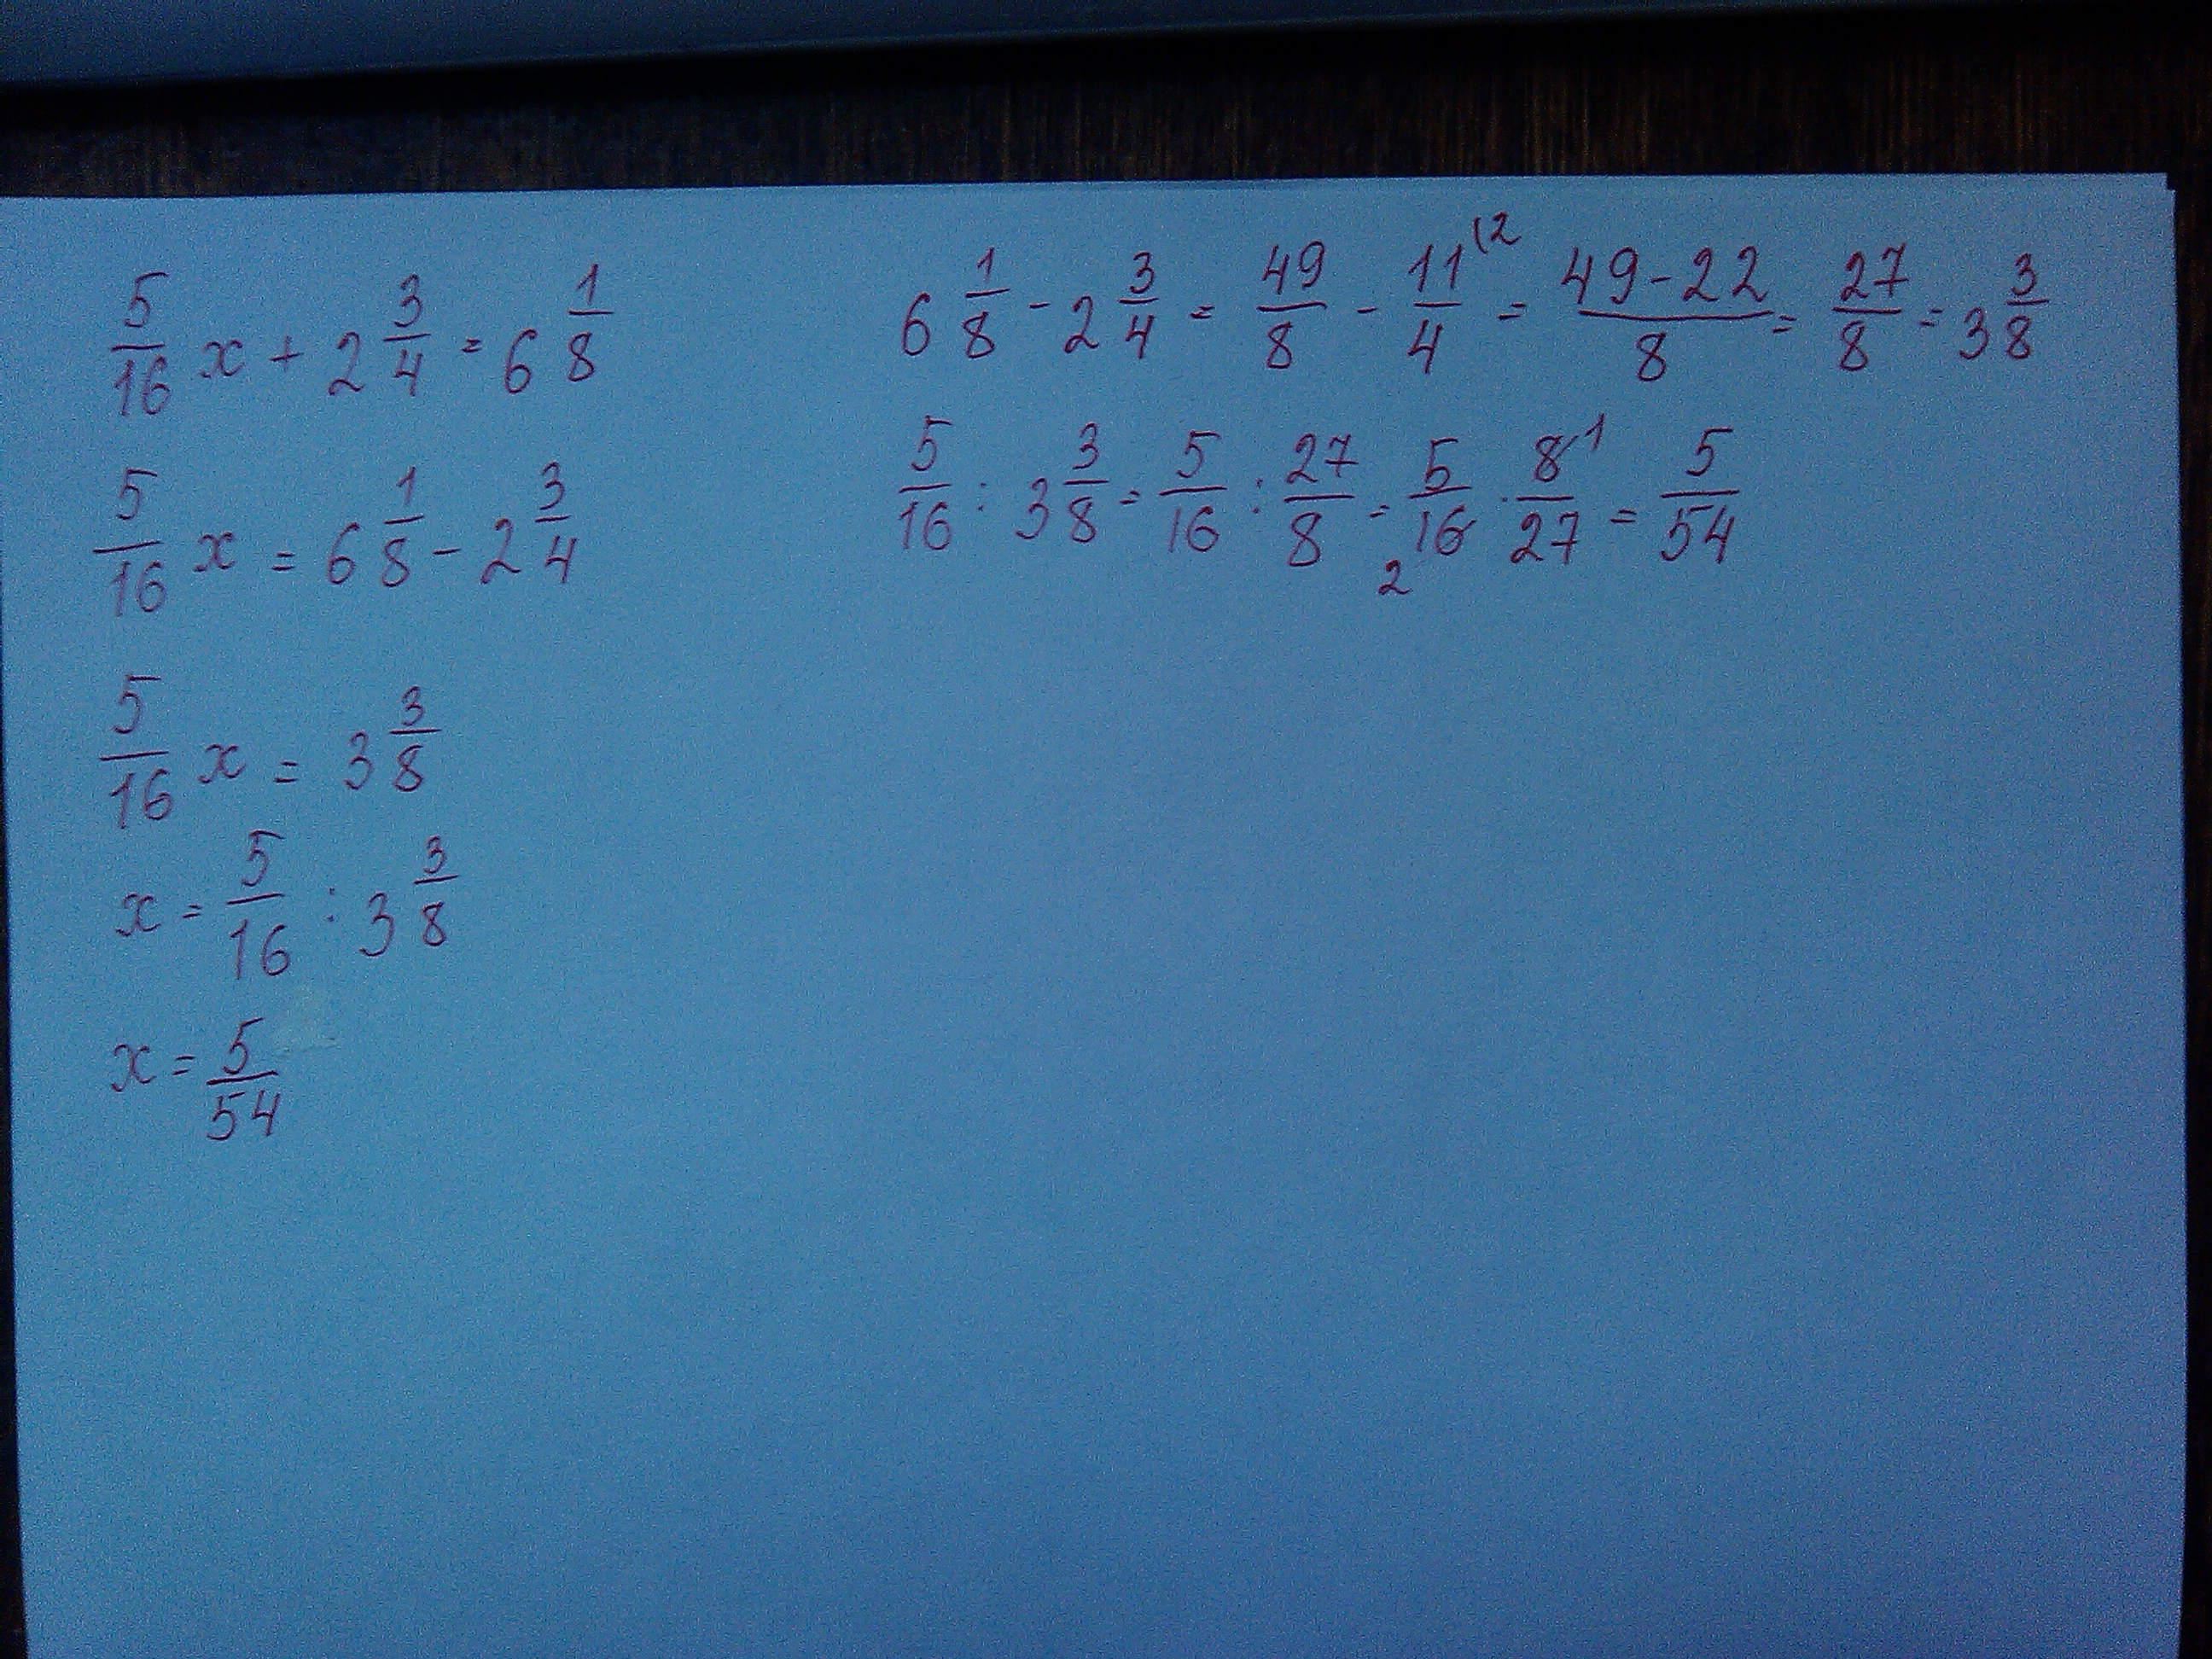 5/16 x + 2 3/4 = 6 1/8
5/16 x = 6 1/8 - 2 3/4
5/16 x = 3 3/8
x = 5/16 : 3 3/8
x = 5/54
6 1/8 - 2 3/4 = 49/8 - 11/4 (2 = 49-22/8 = 27/8 = 3 3/8
5/16 : 3 3/8 = 5/16 : 27/8 = 5/16 2 · 8 1/27 = 5/54